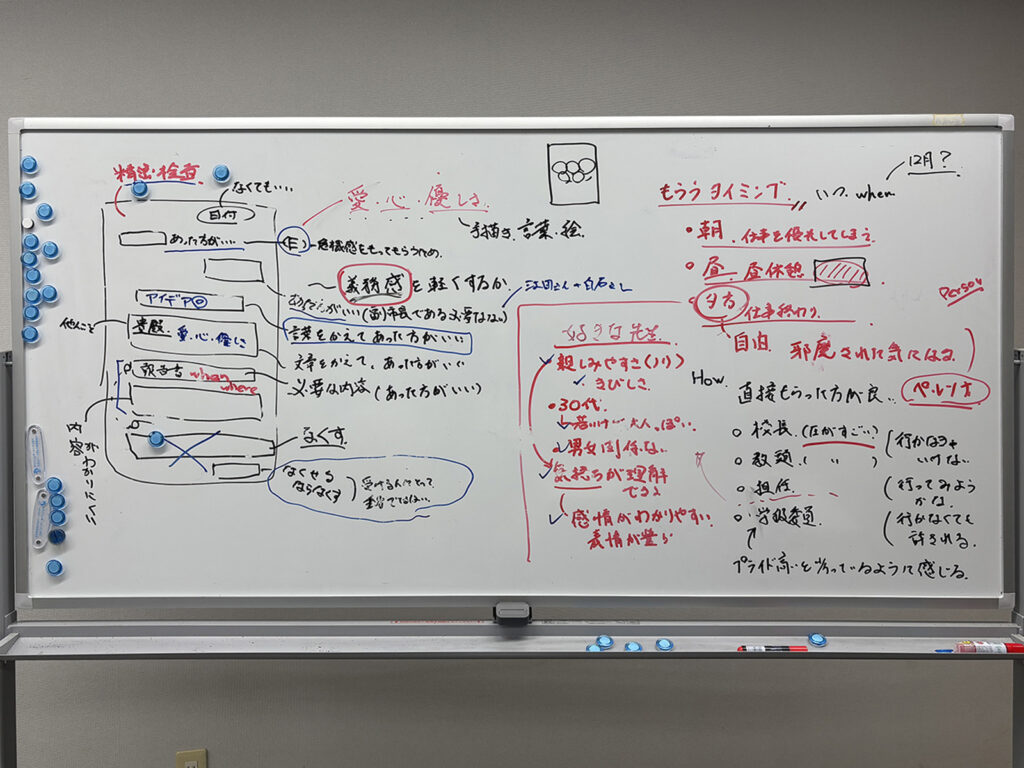 精密検査
なくても…
日付
あった方が…
危機感をもってもらうため.
愛・心・優しさ
手描き, 言葉・絵.
義務感を軽くするか
アイデア
言葉をかえてあった方がいい
他人ごと
愛・心・優しさ
文章をかえて, あった方がいい
報告書 when
where
必要な内容 (あった方がいい)
内容がわかりにくい
なくす.
なくせる
ならなくす
もらうタイミング
いつ. when
12月?
・朝. 仕事を優先してしまう.
・昼 昼休憩
・夕方 仕事終わり.
自由
邪魔された気になる
Person
好きな先生
親しみやすさ(ノリ)
きびしさ
・30代.
若いけど大人っぽい.
男女関係ない
気持ちが理解
できる
感情がわかりやすい.
表情が豊か
How.
直接もらった方が良
ペルソナ
○ 校長. (圧がすごい) (行かなきゃ
いけない
○ 教頭 ( 〃 )
○ 担任 (行ってみよう
かな.
○ 学級委員 (行かなくても
許される.
プライド高いと労っているように感じる.